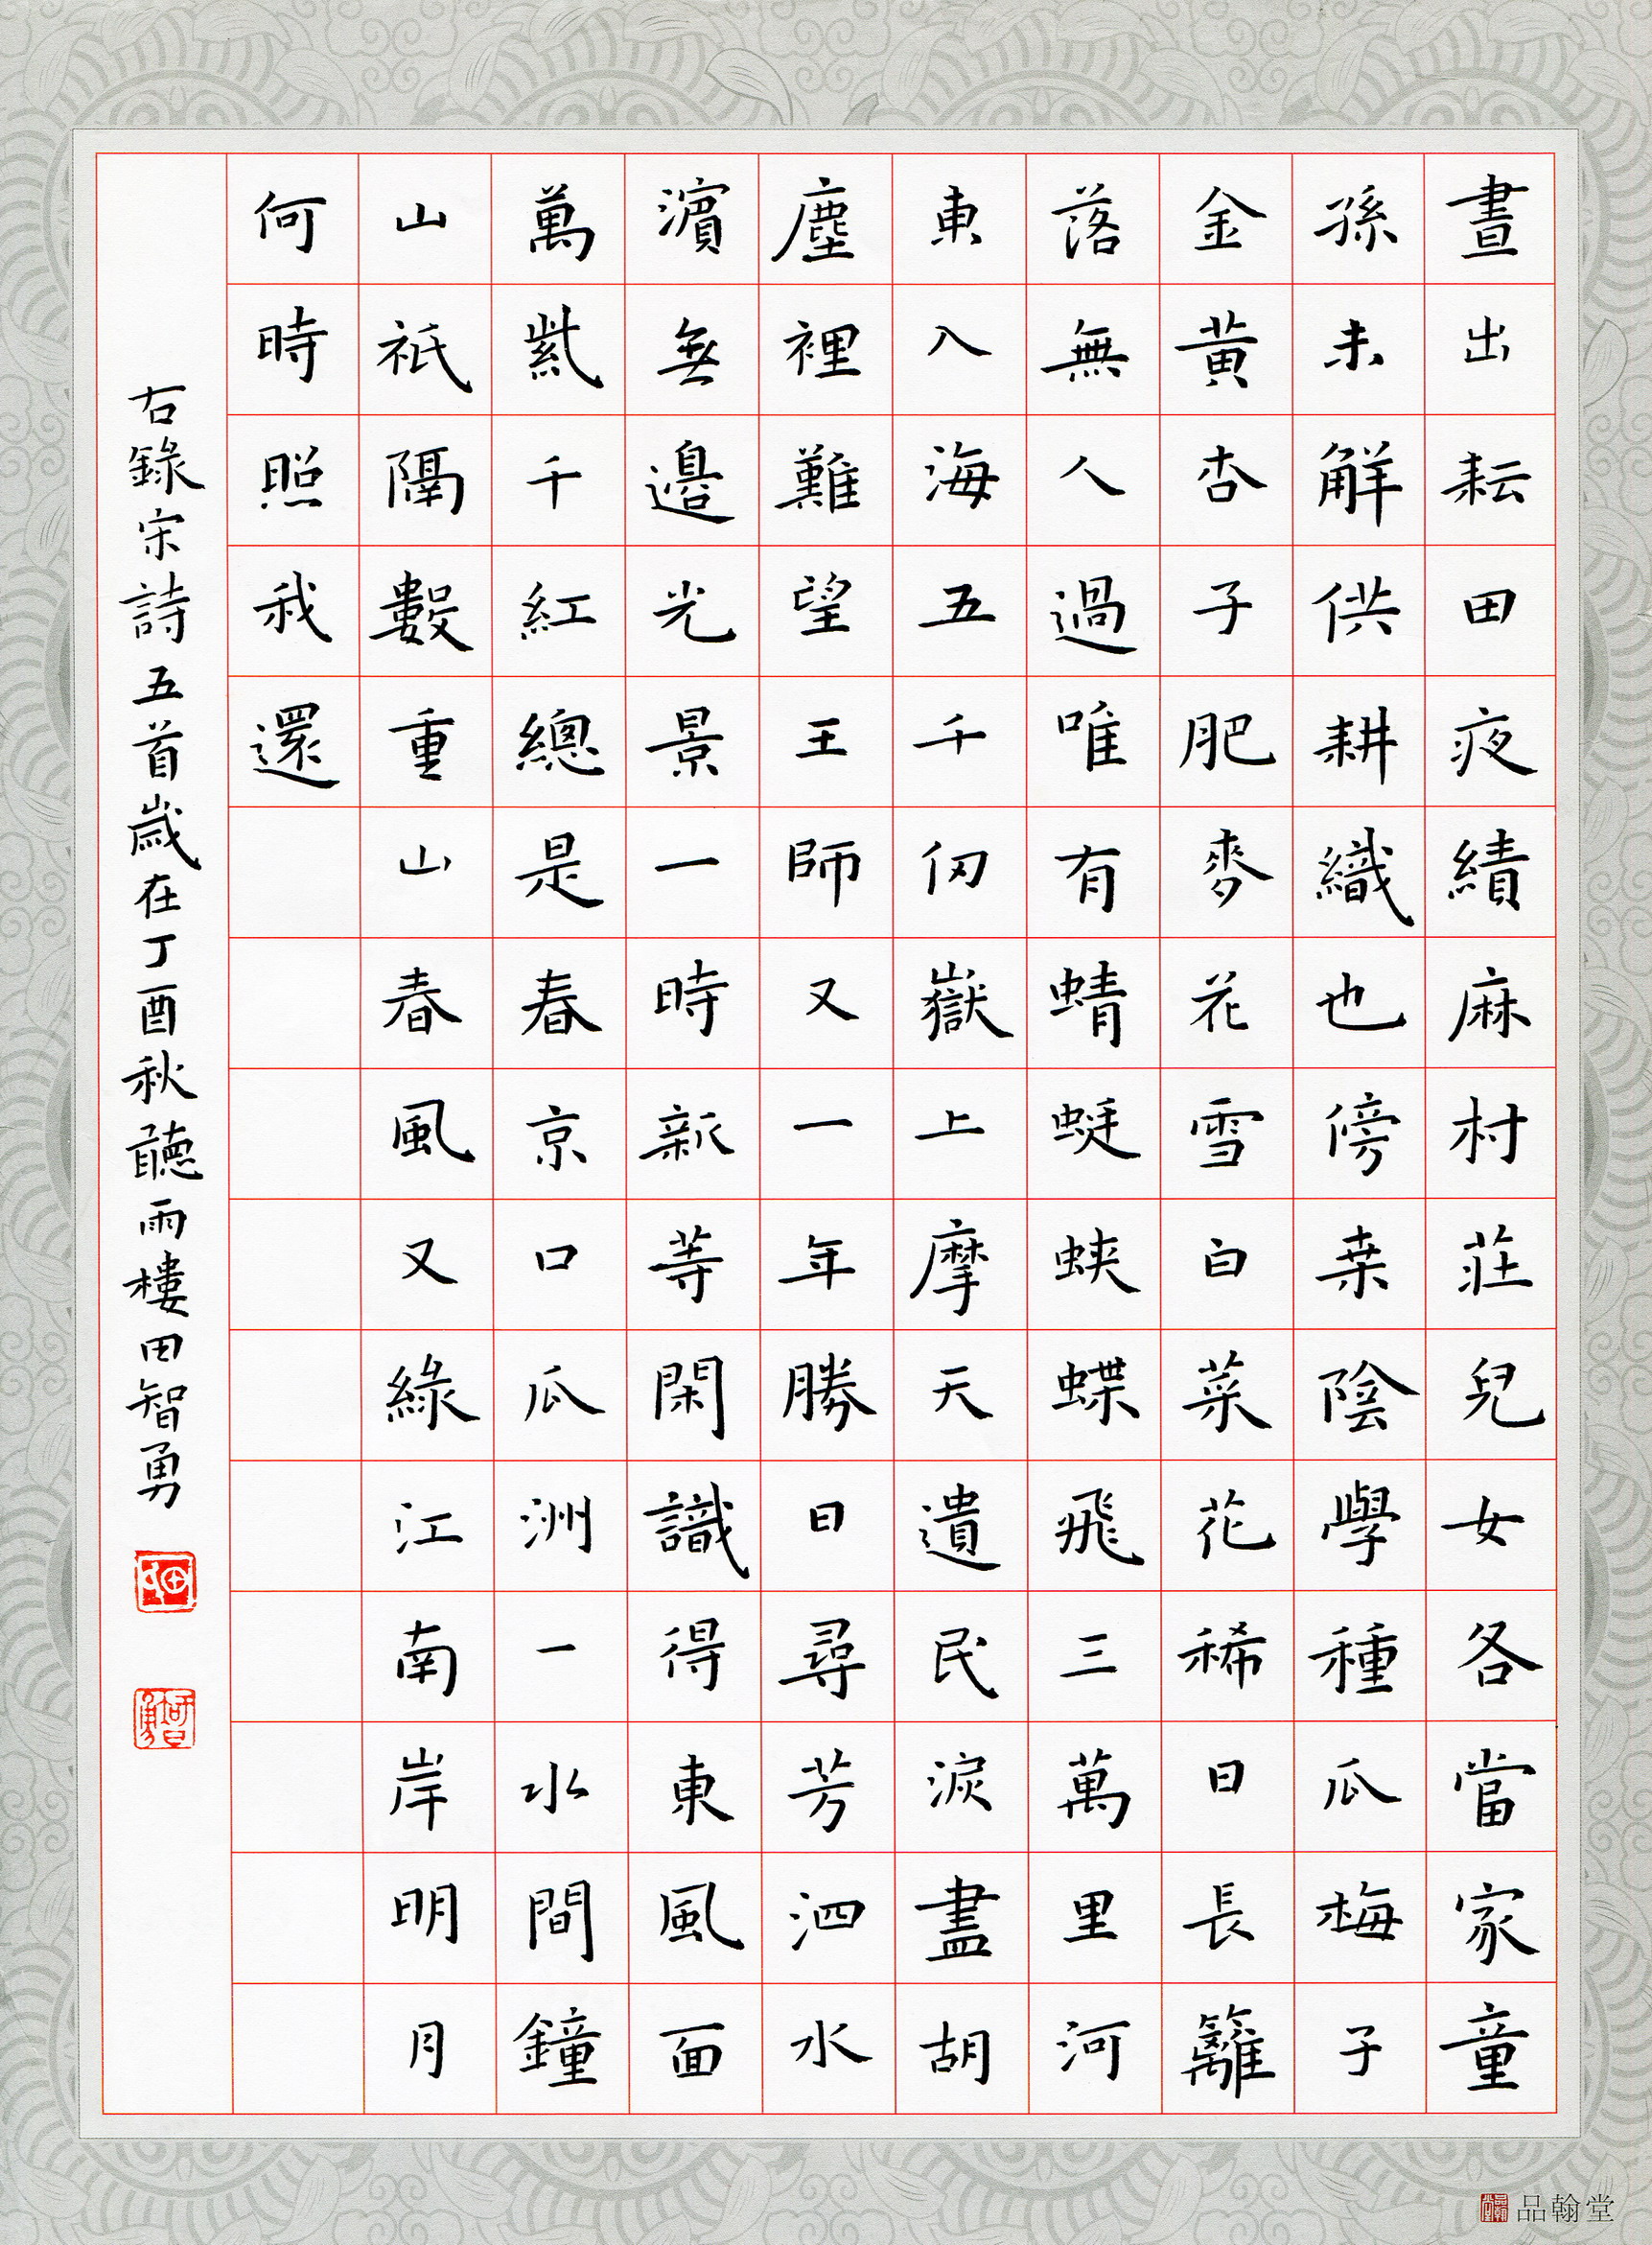 晝出耘田夜績麻村莊兒女各當家童
孫未解供耕織也傍桒陰學種瓜梅子
金黃杏子肥麥花雪白菜花稀日長籬
落無人過唯有蜻蜓蛺蝶飛三萬里河
東入海五千仞嶽上摩天遺民淚盡胡
塵裡難望王師又一年勝日尋芳泗水
濱無邊光景一時新等閑識得東風面
萬紫千紅總是春京口瓜洲一水間鐘
山祇隔數重山春風又綠江南岸明月
何時照我還
右錄宋詩五首歲在丁酉秋聽雨樓田智勇
田
智勇
品翰堂